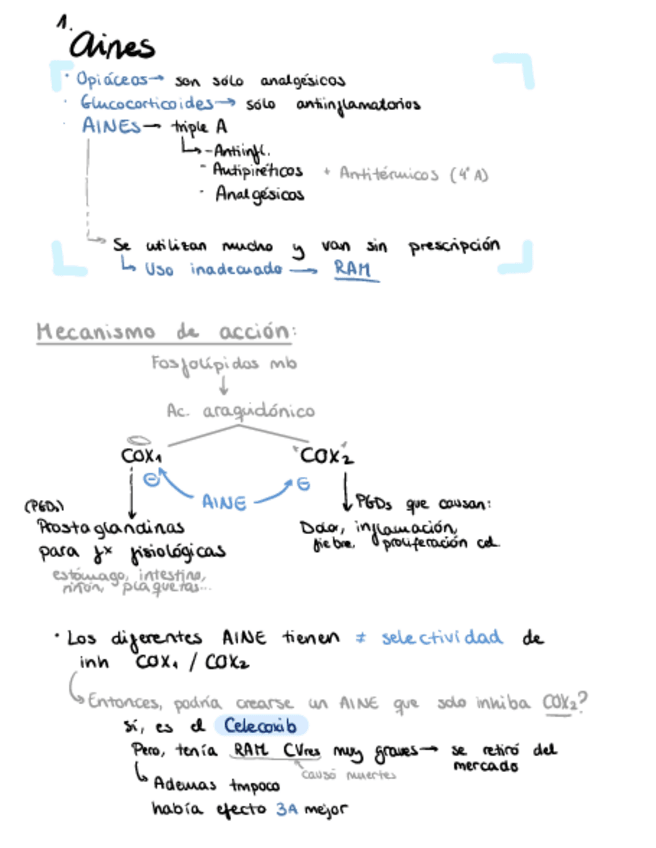 1.
Aines
· Opiáceos → son sólo analgésicos
· Glucocorticoides → sólo antiinflamatorios
· AINES → triple A
↳ - Antiinfl.
- Antipiréticos + Antitérmicos (4ª A)
· Analgésicos
Se utilizan mucho y van sin prescripción
↳ Uso inadecuado → RAM
Mecanismo de acción:
Fosfolípidos mb
↓
Ac. araquidónico
COX1 COX2
⊖ AINE ⊖
(PGDs) PGDs que causan:
Prostaglandinas Dolor, inflamación,
para fx fisiológicas fiebre, proliferación cel.
estómago, intestino,
riñón, plaquetas...
· Los diferentes AINE tienen ≠ selectividad de
inh COX1 / COX2
↳ Entonces, podría crearse un AINE que solo inhiba COX2?
Sí, es el Celecoxib
Pero, tenía RAM CVres muy graves → se retiró del
mercado
causó muertes
↳ Ademas tmpoco
había efecto 3A mejor